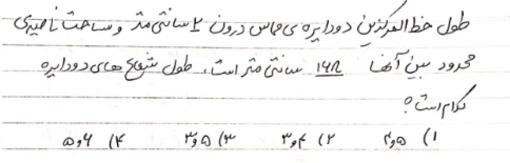 طول خط المرکزین دو دایره ی مماس درون ۲ سانتی متر و مساحت ناحیه ی
محدود بین آنها ۱۶π سانتی متر است. طول شعاع های دو دایره
کدام است؟
۱) ۵ و ۲) ۴ و ۳ ۳) ۵ و ۳ ۴) ۶ و ۵